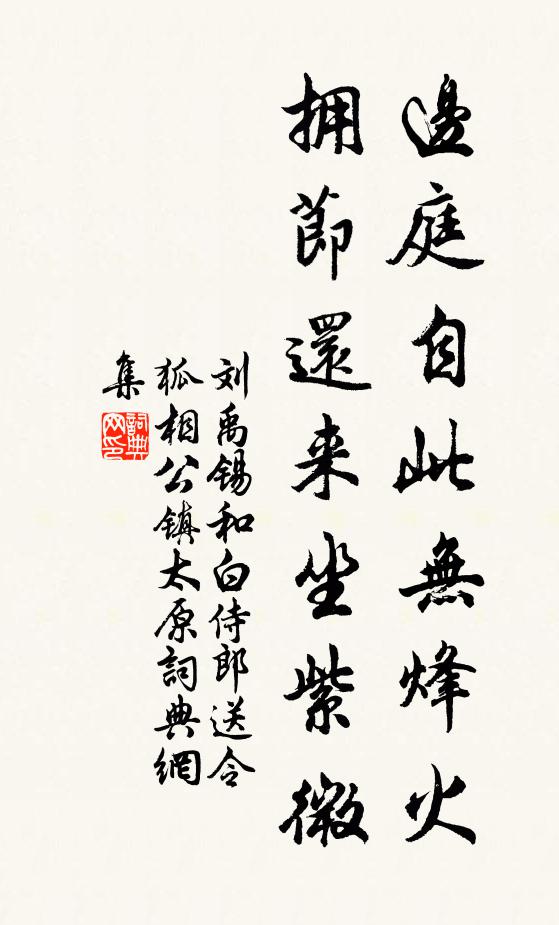 邊庭自此無烽火
擁節還来坐紫微
刘禹錫和白侍郎送令
狐相公鎮太原詞典網
集
詞典
网印